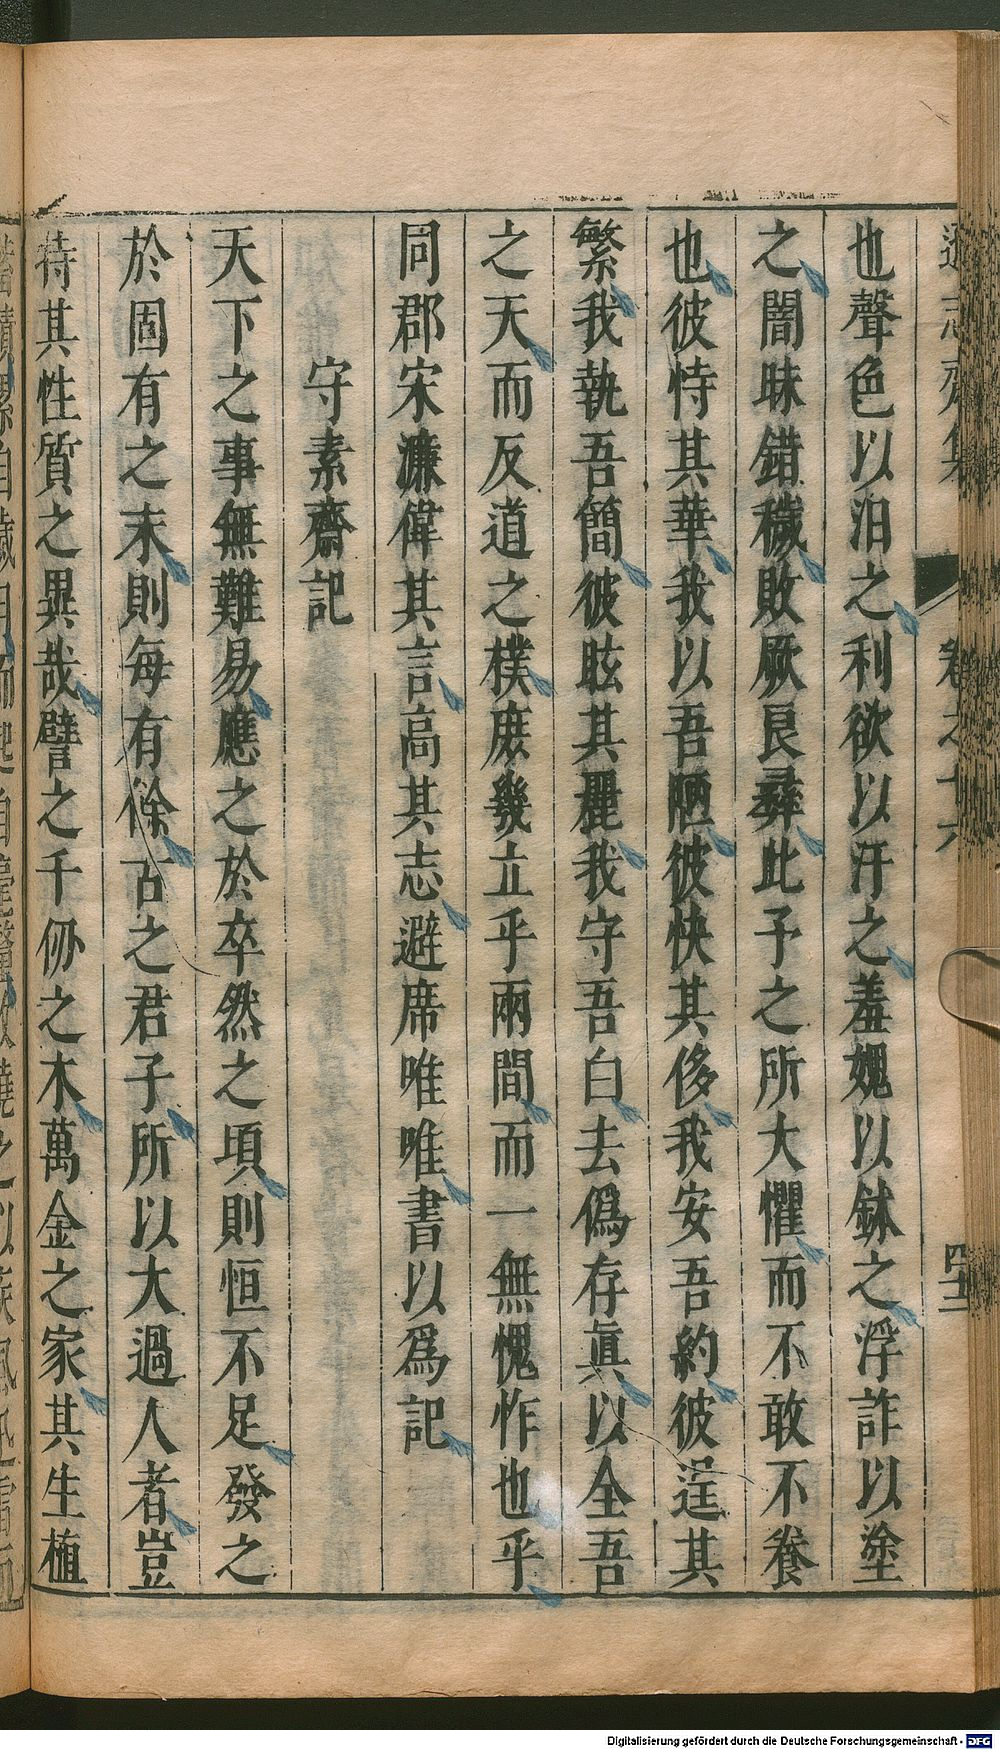 遜志齋集 卷之十六 四十二
也聲色以汨之利欲以汙之羞媿以鉢之浮詐以塗
之闇昧錯穢敗厥良彞此予之所大懼而不敢不養
也彼恃其華我以吾陋彼快其侈我安吾約彼逞其
繁我執吾簡彼眩其麗我守吾白去僞存眞以全吾
之天而反道之樸庶幾立乎兩間而一無愧怍也乎
同郡宋濂偉其言高其志避席唯唯書以爲記
守素齋記
天下之事無難易應之於卒然之頃則恒不足發之
於固有之末則每有餘古之君子所以大過人者豈
待其性質之異哉譬之千仞之木萬金之家其生植
Digitalisierung gefördert durch die Deutsche Forschungsgemeinschaft - DFG